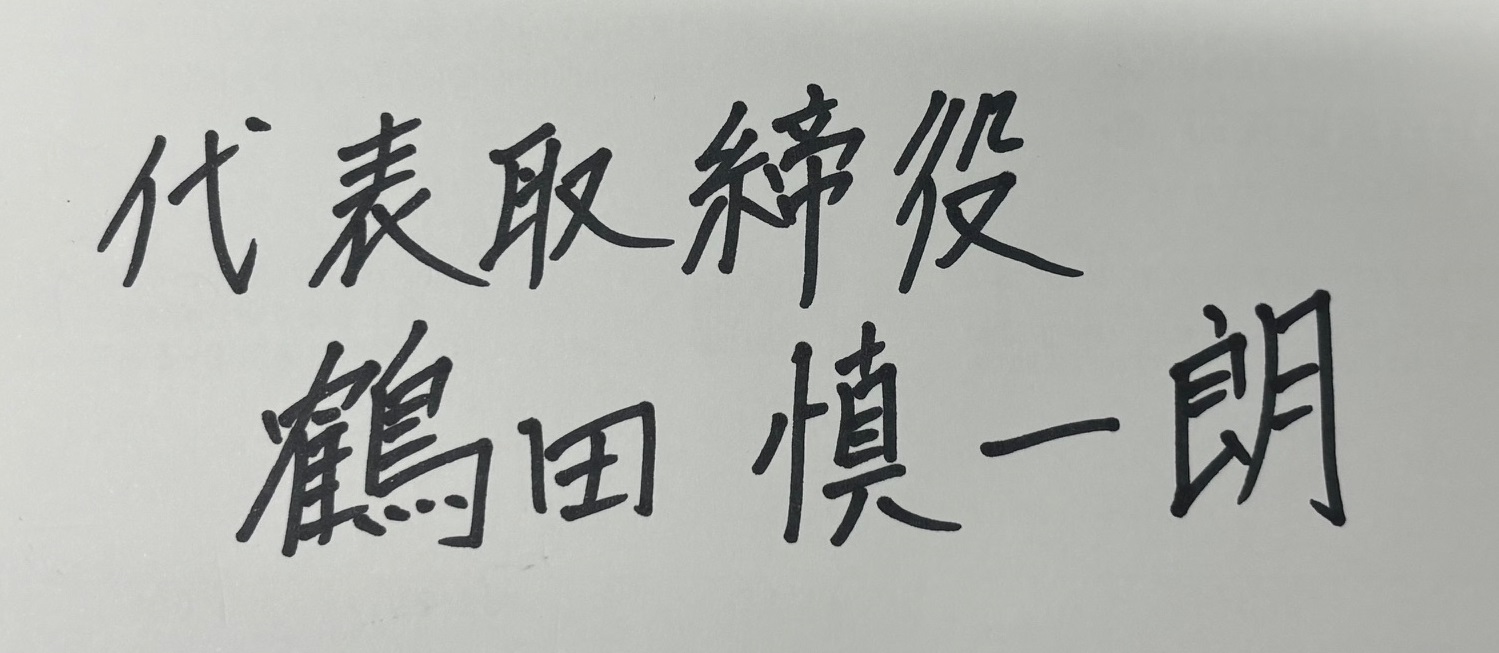 代表取締役
鶴田 慎一朗